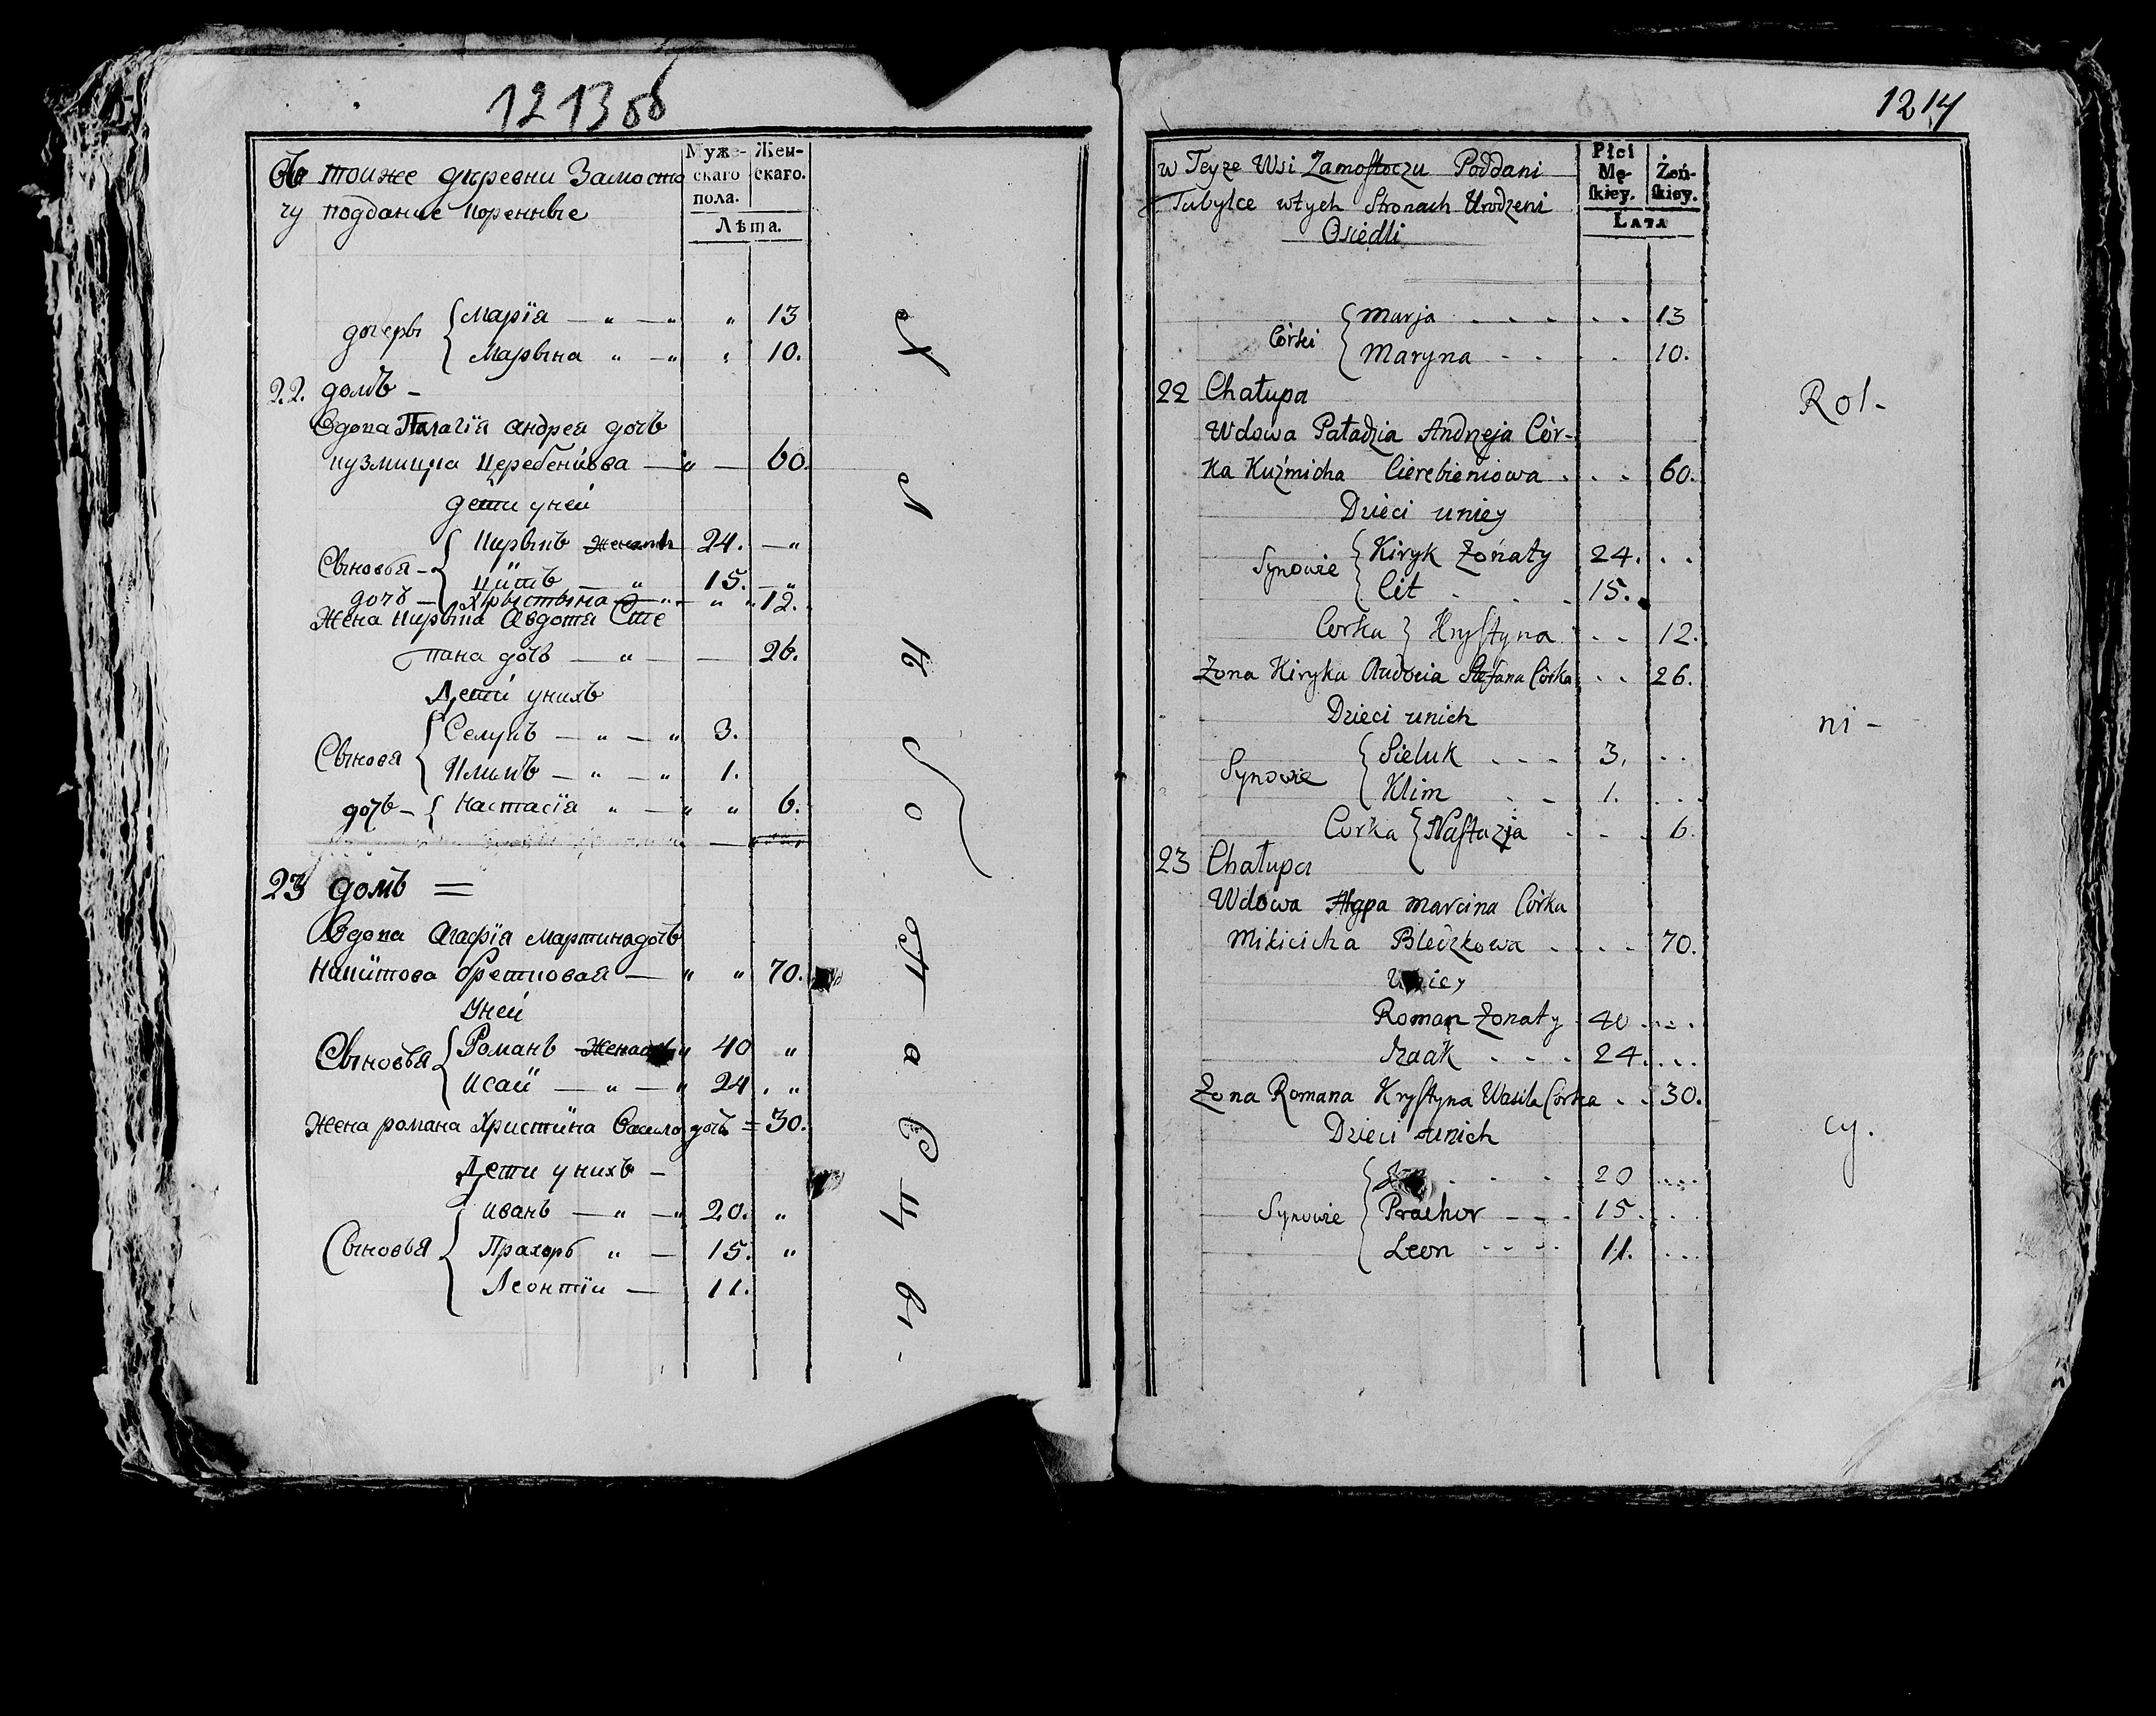 1213об
въ тоиже диревни Замосто
чу подданые коренные
Муже-
скаго
пола.
Жен-
скаго.
Лѣта.
дочеры { Марїя — " — " " 13
Марына " — " " 10.
22. домъ –
Вдова Палагїя Андрея дочъ
кузмиџка Церебенїова — " — 60.
дети уней
Сыновья – { Кирыкъ Женатъ 24. — "
Цїтъ — " 15. — "
дочъ – Хрыстына — " " " 12.
Жена Кирыка Авдотя Сте
пана дочъ — " — — 26.
Дети унихъ
Сынова { Селукъ — " — " 3.
Климъ — " — " 1.
дочъ – { Настасїя " — " " 6.
23 домъ =
Вдова Агафїя Мартинадочъ
Никїтова — " " 70.
Уней
Сыновья { Романъ Женатъ " 40 "
Исай — " — " 24. "
Жена романа Христїна Василадочъ = 30.
Дети унихъ –
Сыновья { Иванъ — " — " 20. "
Прахоръ " — 15. "
Леонтїи — 11.
1214
w Teyże Wsi Zamostoczu Poddani
Tubylce wtych Stronach Urodzeni
Osiedli
Płci
Mę-
skiey.
Żeń-
skiey.
Lata
Córki { Marja . . . . . 13
Maryna . . . . 10.
22 Chałupa
Rol-
Wdowa Paładzia Andrzeja Cór-
ka Kuźmicha Cierebieniowa . . . 60.
Dzieci uniey
Synowie { Kiryk Żonaty 24. . .
Cit . . . 15.
Corka } Krystyna . . . 12.
Żona Kiryka Audocia Stefana Córka . . 26.
Dzieci unich
ni -
Synowie { Sieluk . . . 3. . .
Klim . . 1. . . .
Corka { Nastazja . . . 6.
23 Chałupa
Wdowa Agpa Marcina Córka
Mikicicha Bledzkowa . . . . 70.
Uniey
Roman Żonaty 40 . . .
Izaak . . . 24. . . .
Żona Romana Krystyna Wasila Corka . . 30.
Dzieci unich
cy.
. . . . 20 . . .
Synowie { Prachor – – . 15. . .
Leon . . . . 11. . . .